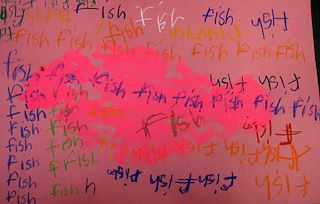 fish fish fish fish
fish fish fish
fish fish fish fish fish fish fish
fish fish fish
fish fish fish fish fish fish fish fish fish
fish fish fish
fish fish fish fish fish
fish fish fish
fish fish fish fish fish fish
fish fish fish fish
fish fish fish fish fish